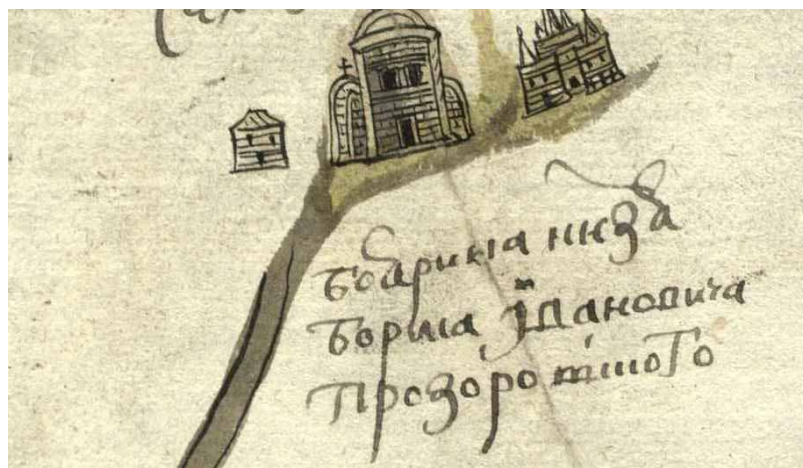 боярина кнзя
бориса ївановича
прозоровского